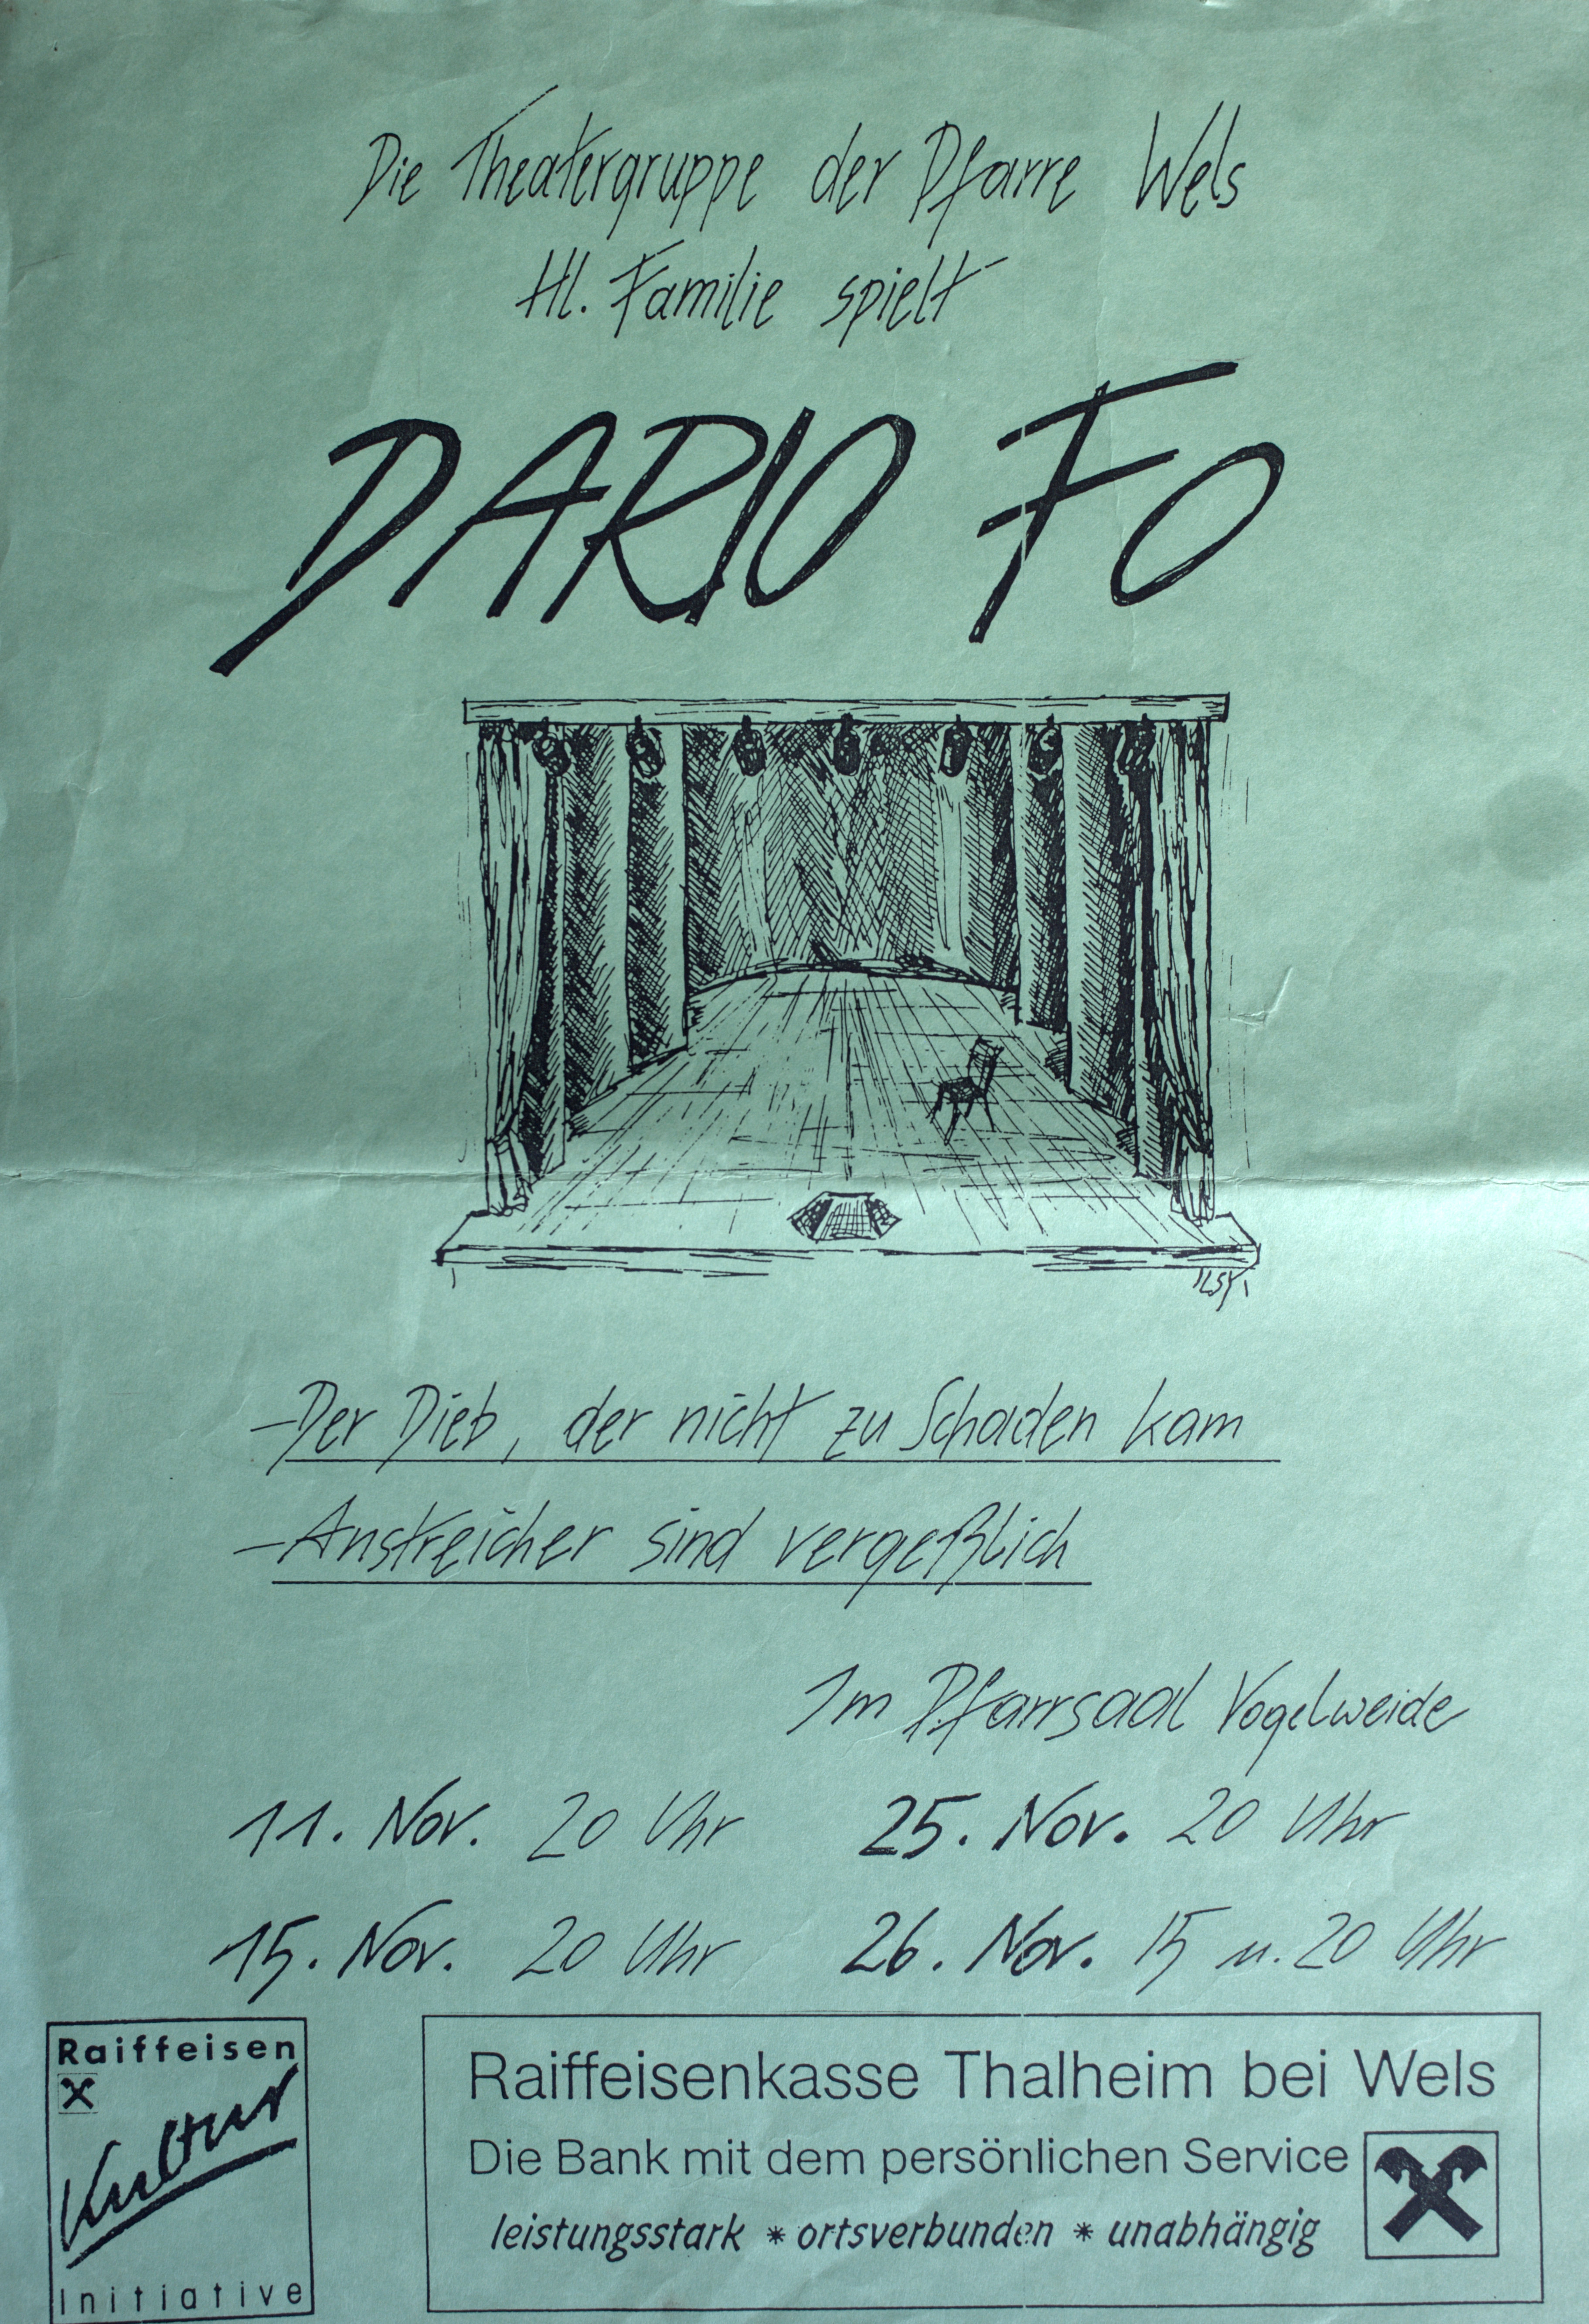 Die Theatergruppe der Pfarre Wels
Hl. Familie spielt
DARIO FO
-Der Dieb, der nicht zu Schaden kam
-Anstreicher sind vergeßlich
Im Pfarrsaal Vogelweide
11. Nov. 20 Uhr 25. Nov. 20 Uhr
15. Nov. 20 Uhr 26. Nov. 15 u. 20 Uhr
Raiffeisen
Kultur
Initiative
Raiffeisenkasse Thalheim bei Wels
Die Bank mit dem persönlichen Service
leistungsstark * ortsverbunden * unabhängig